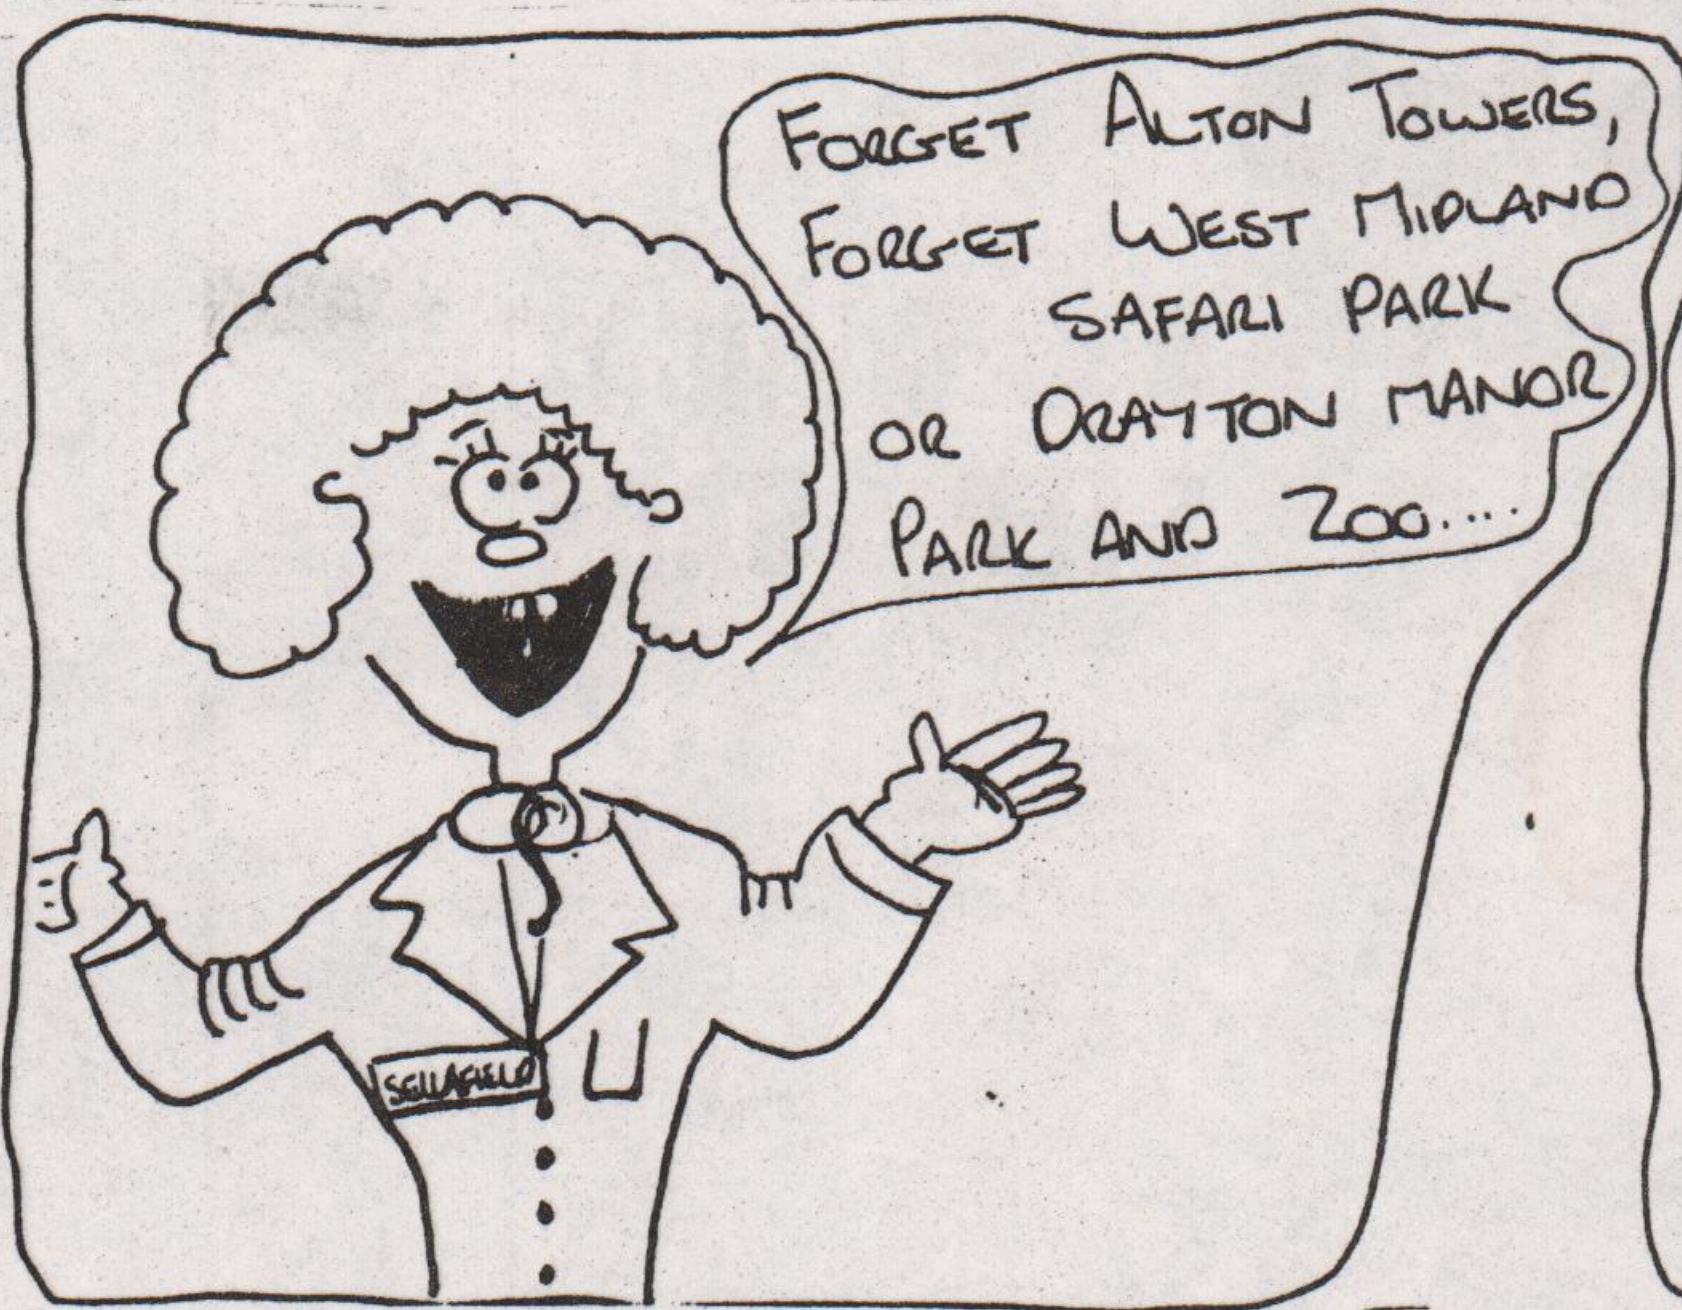 FORGET ALTON TOWERS,
FORGET WEST MIDLAND
SAFARI PARK
OR DRAYTON MANOR
PARK AND ZOO....
SELLAFIELD